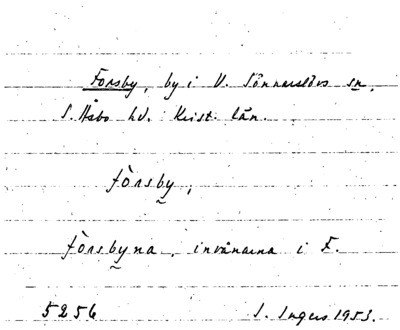 Forsby, by i V. Sönnarslövs sn,
S. Åsbo hd. Krist. län.
fòrsby,
fòrsbyna, invånarna i F.
5256 I. Ingers 1953.